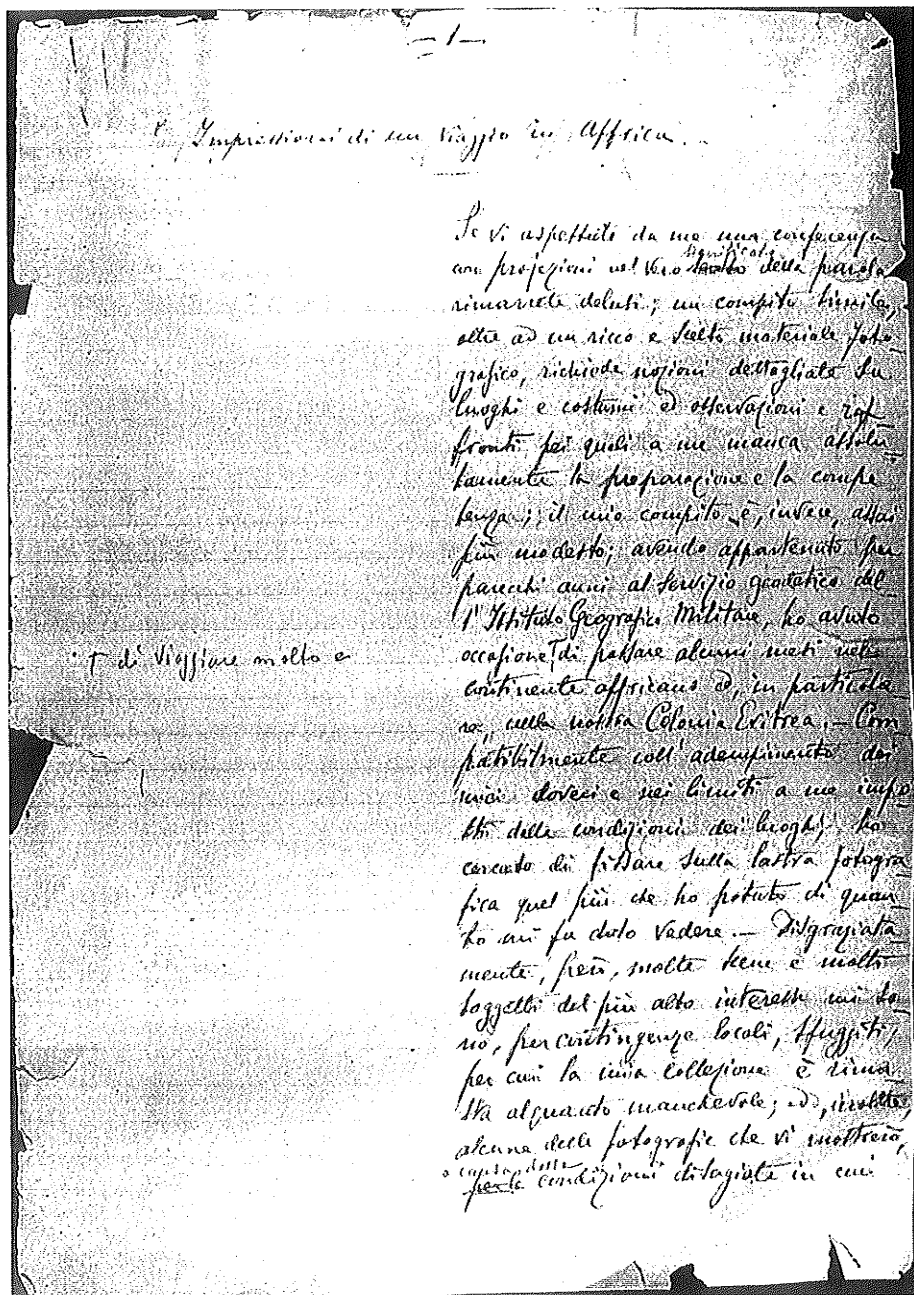 — 1 —
Impressioni di un viaggio in Affrica.
Se vi aspettate da me una conferenza
significato
con projezioni nel vero senso della parola
rimarrete delusi; un compito simile,
oltre ad un ricco e scelto materiale foto-
grafico, richiede nozioni dettagliate su
luoghi e costumi ed osservazioni e raf
fronti pei quali a me manca assolu
tamente la preparazione e la compe
tenza; il mio compito è, invece, assai
più modesto; avendo appartenuto per
parecchi anni al servizio geodetico del
l'Istituto Geografico Militare, ho avuto
⌈ di viaggiare molto e
occasione ⌈ di passare alcuni mesi nel
continente affricano ed, in particola
re, nella nostra Colonia Eritrea. — Com
patibilmente coll'adempimento dei
miei doveri e nei limiti a me impo
sti dalle condizioni dei luoghi, ho
cercato di fissare sulla lastra fotogra
fica quel più che ho potuto di quan
to mi fu dato vedere. — Disgraziata
mente, però, molte scene e molti
soggetti del più alto interesse mi so
no, per contingenze locali, sfuggiti;
per cui la mia collezione è rima
sta alquanto manchevole; ed, inoltre,
alcune delle fotografie che vi mostrerò,
a causa delle
per le condizioni disagiate in cui